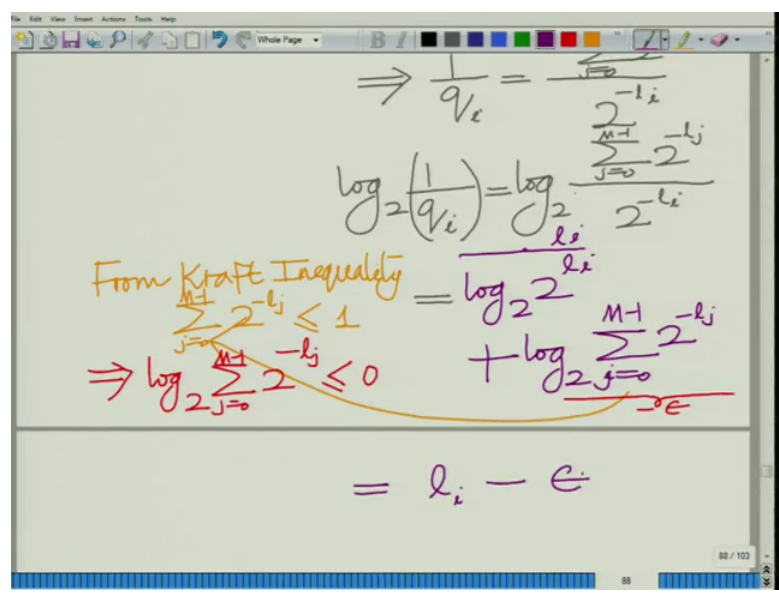 File Edit View Insert Actions Tools Help
Whole Page
B I
⇒ 1/q_i = Σ_{j=0} / 2^{-l_i}
log_2(1/q_i) = log_2 Σ_{j=0}^{M-1} 2^{-l_j} / 2^{-l_i}
l_i
From Kraft Inequality = log_2 2^{l_i}
Σ_{j=0}^{M-1} 2^{-l_j} ≤ 1
+ log_2 Σ_{j=0}^{M-1} 2^{-l_j}
⇒ log_2 Σ_{j=0}^{M-1} 2^{-l_j} ≤ 0
-ϵ
= l_i - ϵ
88 / 103
88